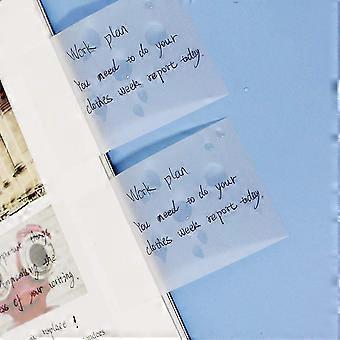 Work plan
You need to do your
clothes week report today.
Work plan
You need to do your
clothes week report today.
the
of your writing.
replace!